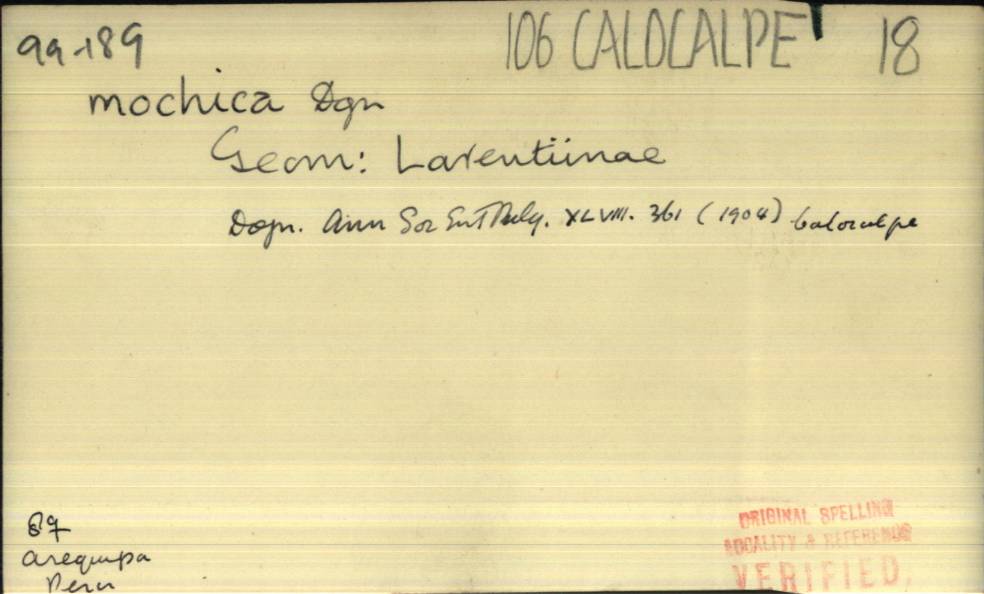 99-189
106 CALOCALPE 18
mochica Dgn
Geom: Larentiinae
Dogn. Ann Soc Ent Belg. XLVIII. 361 (1904) Calocalpe
Arequipa
Peru
ORIGINAL SPELLING
LOCALITY & REFERENCE
VERIFIED.